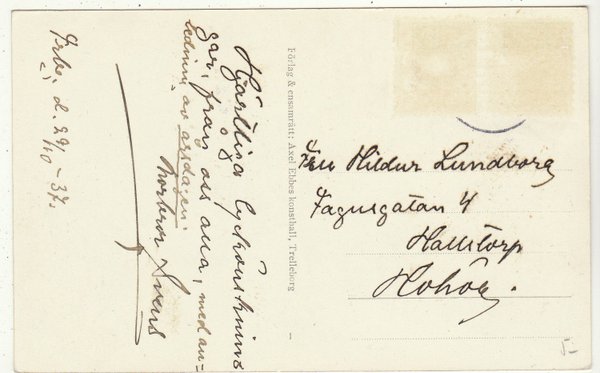 d. 29/10 - 37.
Hjärtliga lyckönsknin-
gar, från oss alla, med an-
ledning av årsdagen.
Morbror
Förlag & ensamrätt: Axel Ebbes konsthall, Trelleborg
Fru Hildur Lundborg
Fagusgatan 4
Hallstorp
5-